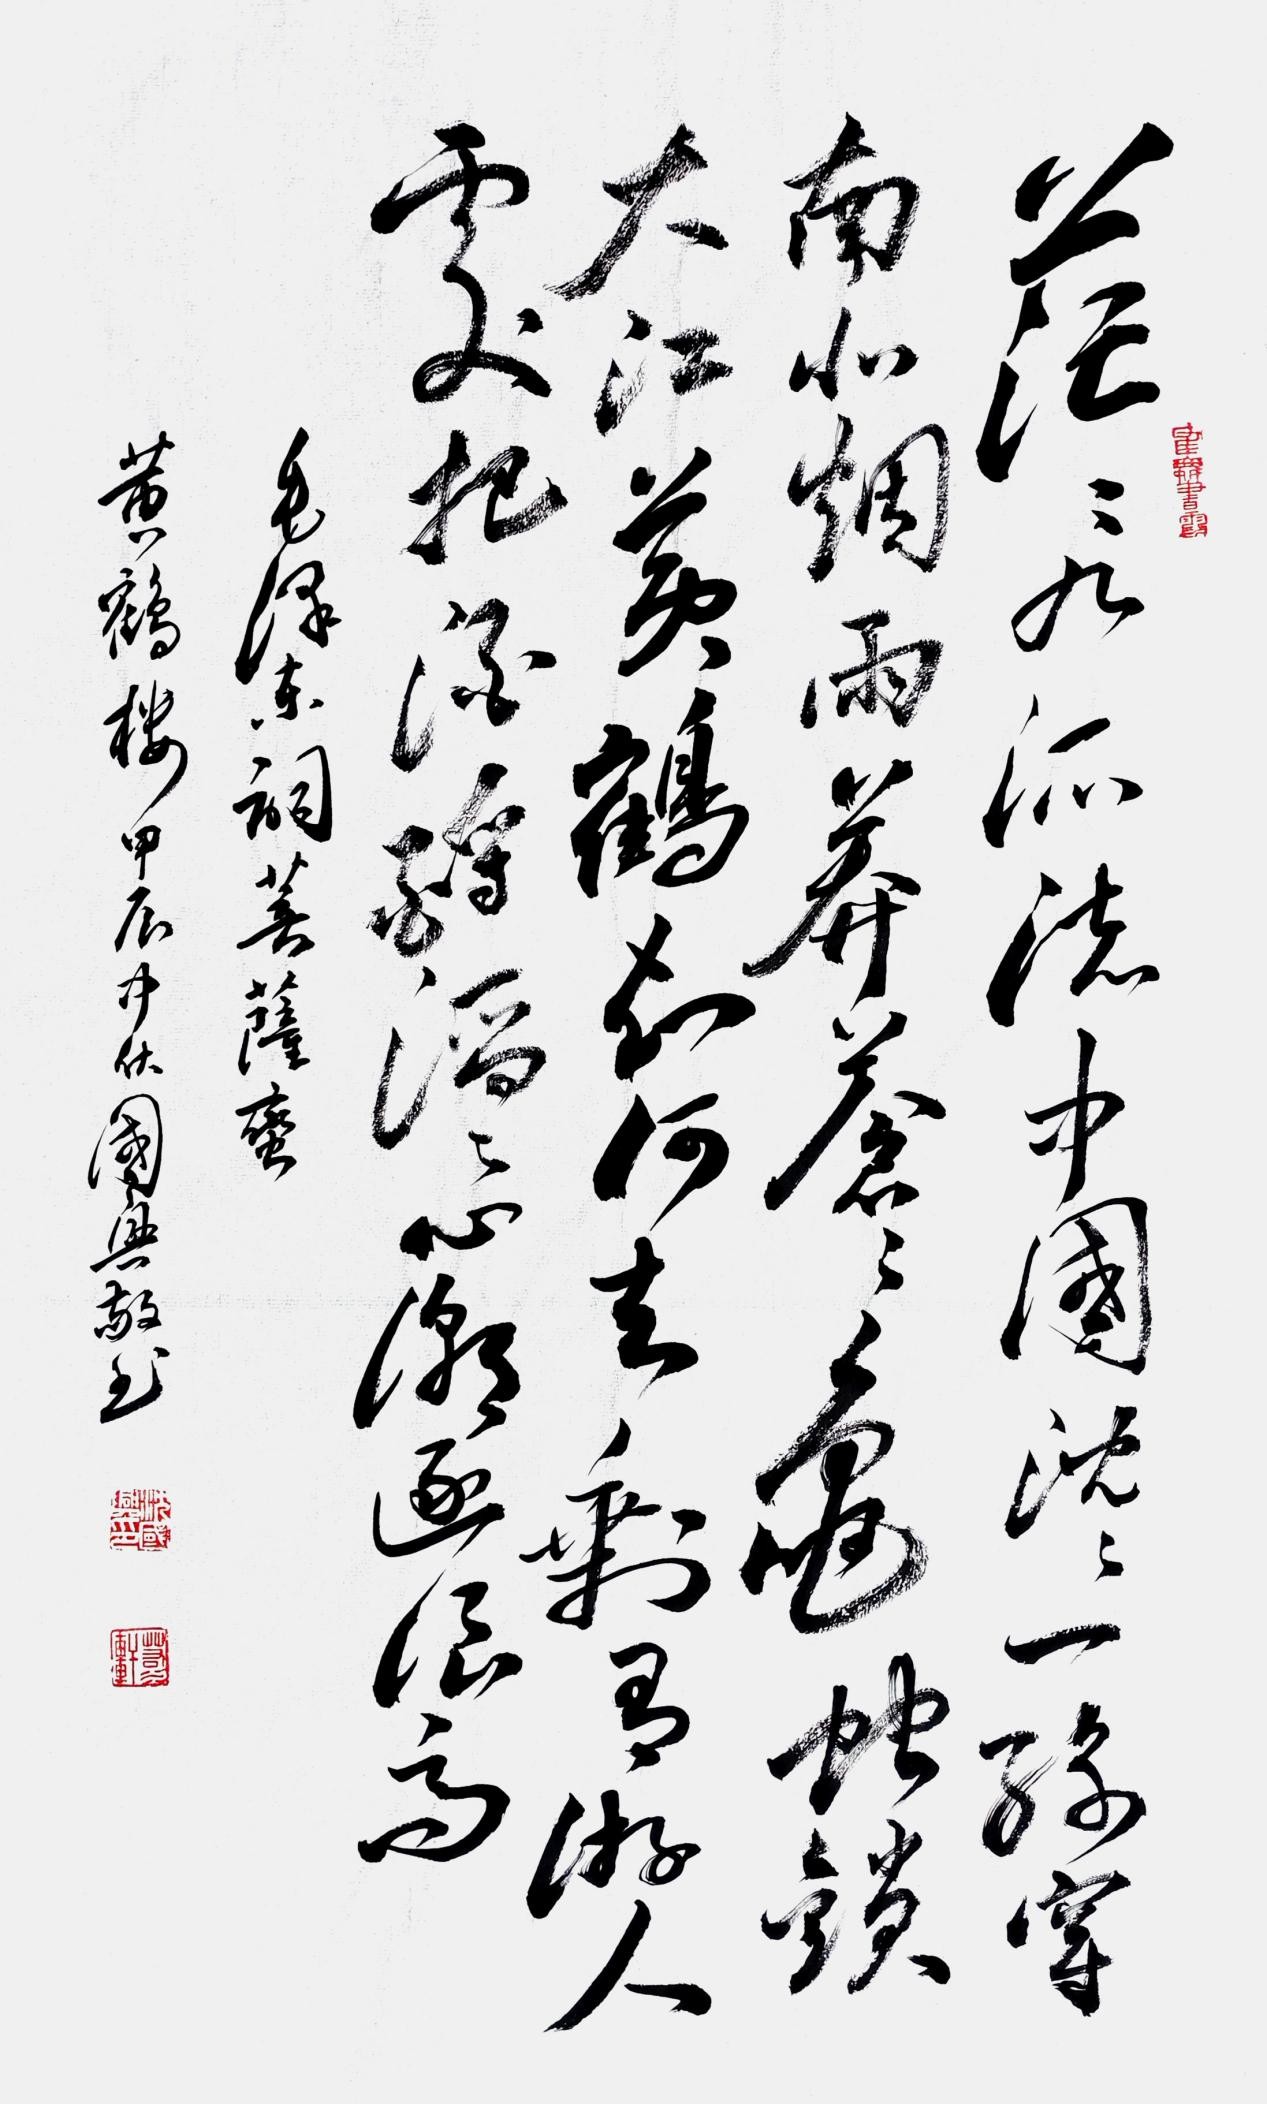 茫〻九派流中國沈〻一線穿
南北烟雨莽蒼〻龜蛇鎖
大江黃鶴知何去剩有游人
處把酒酹滔〻心潮逐浪高
毛澤東詞菩薩蠻
黄鶴樓甲辰中伏國興敬书